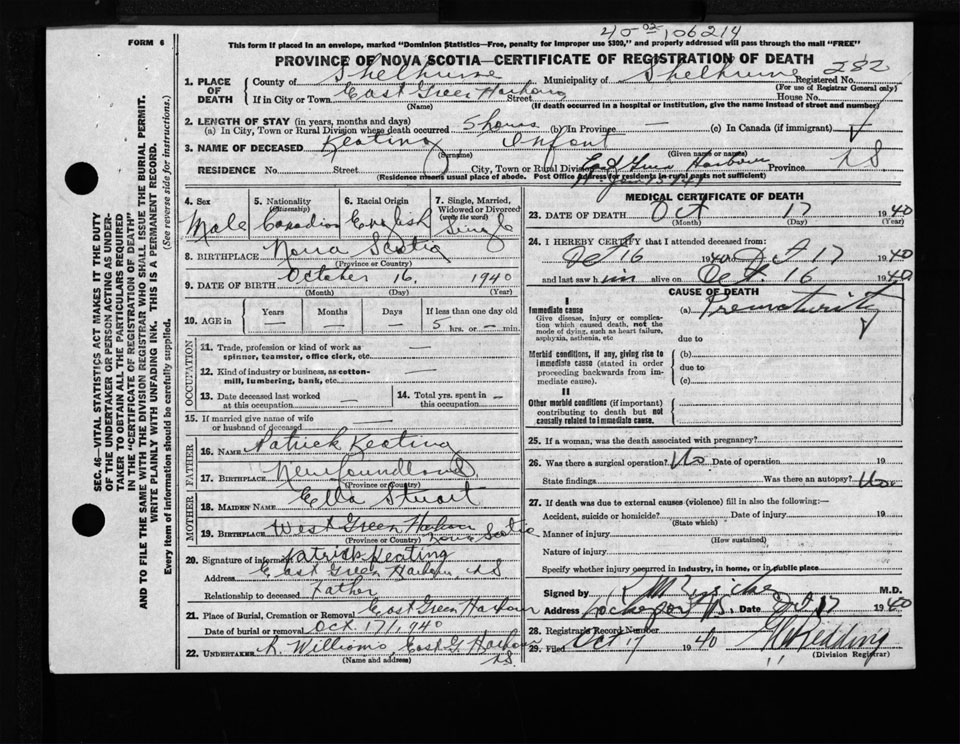 45 02 106214
FORM 6
This form if placed in an envelope, marked "Dominion Statistics—Free, penalty for improper use $300," and properly addressed will pass through the mail "FREE"
PROVINCE OF NOVA SCOTIA—CERTIFICATE OF REGISTRATION OF DEATH
1. PLACE OF DEATH
County of Shelburne Municipality of Shelburne Registered No. 282
(For use of Registrar General only)
If in City or Town East Green Harbour Street House No.
(Name) (If death occurred in a hospital or institution, give the name instead of street and number)
2. LENGTH OF STAY (in years, months and days)
(a) In City, Town or Rural Division where death occurred 5 hours (b) In Province — (c) In Canada (if immigrant)
3. NAME OF DECEASED Keating Infant
(Surname) (Given name or names)
RESIDENCE No. Street City, Town or Rural Division East Green Harbour Province NS
(Residence means usual place of abode. Post Office Address for residents in rural parts not sufficient)
4. Sex Male
5. Nationality (Citizenship) Canadian
6. Racial Origin English
7. Single, Married, Widowed or Divorced (write the word) Single
8. BIRTHPLACE Nova Scotia
(Province or Country)
9. DATE OF BIRTH October 16 1940
(Month) (Day) (Year)
10. AGE in Years — Months — Days — If less than one day old 5 hrs. or — min.
OCCUPATION
11. Trade, profession or kind of work as spinner, teamster, office clerk, etc. —
12. Kind of industry or business, as cotton-mill, lumbering, bank, etc. —
13. Date deceased last worked at this occupation —
14. Total yrs. spent in this occupation —
15. If married give name of wife or husband of deceased
FATHER
16. NAME Patrick Keating
17. BIRTHPLACE Newfoundland
(Province or Country)
MOTHER
18. MAIDEN NAME Ella Stuart
19. BIRTHPLACE West Green Harbour Nova Scotia
(Province or Country)
20. Signature of informant Patrick Keating
Address East Green Harbour, NS
Relationship to deceased Father
21. Place of Burial, Cremation or Removal East Green Harbour
Date of burial or removal Oct 17/1940
22. UNDERTAKER R. Williams, East G. Harbour NS
(Name and address)
MEDICAL CERTIFICATE OF DEATH
23. DATE OF DEATH Oct 17 1940
(Month) (Day) (Year)
24. I HEREBY CERTIFY that I attended deceased from:
Oct 16 1940 to Oct 17 1940
and last saw him alive on Oct. 16 1940
CAUSE OF DEATH
I
Immediate cause (a) Prematurity
Give disease, injury or complication which caused death, not the mode of dying, such as heart failure, asphyxia, asthenia, etc
due to
Morbid conditions, if any, giving rise to immediate cause (stated in order proceeding backwards from immediate cause).
(b)
due to
(c)
II
Other morbid conditions (if important) contributing to death but not causally related to immediate cause.
25. If a woman, was the death associated with pregnancy?
26. Was there a surgical operation? No Date of operation 19
State findings Was there an autopsy? No
27. If death was due to external causes (violence) fill in also the following:—
Accident, suicide or homicide? Date of injury 19
(State which)
Manner of injury
(How sustained)
Nature of injury
Specify whether injury occurred in industry, in home, or in public place
Signed by M.D.
Address Lockeport NS. Date Oct 17 1940
28. Registrar's Record Number
29. Filed Oct 17 1940 Redding
(Division Registrar)
SEC. 46—VITAL STATISTICS ACT MAKES IT THE DUTY
OF THE UNDERTAKER OR PERSON ACTING AS UNDERTAKER TO OBTAIN ALL THE PARTICULARS REQUIRED
IN THE "CERTIFICATE OF REGISTRATION OF DEATH"
AND TO FILE THE SAME WITH THE DIVISION REGISTRAR WHO SHALL ISSUE THE BURIAL PERMIT.
WRITE PLAINLY WITH UNFADING INK. THIS IS A PERMANENT RECORD.
Every item of information should be carefully supplied. (See reverse side for instructions.)